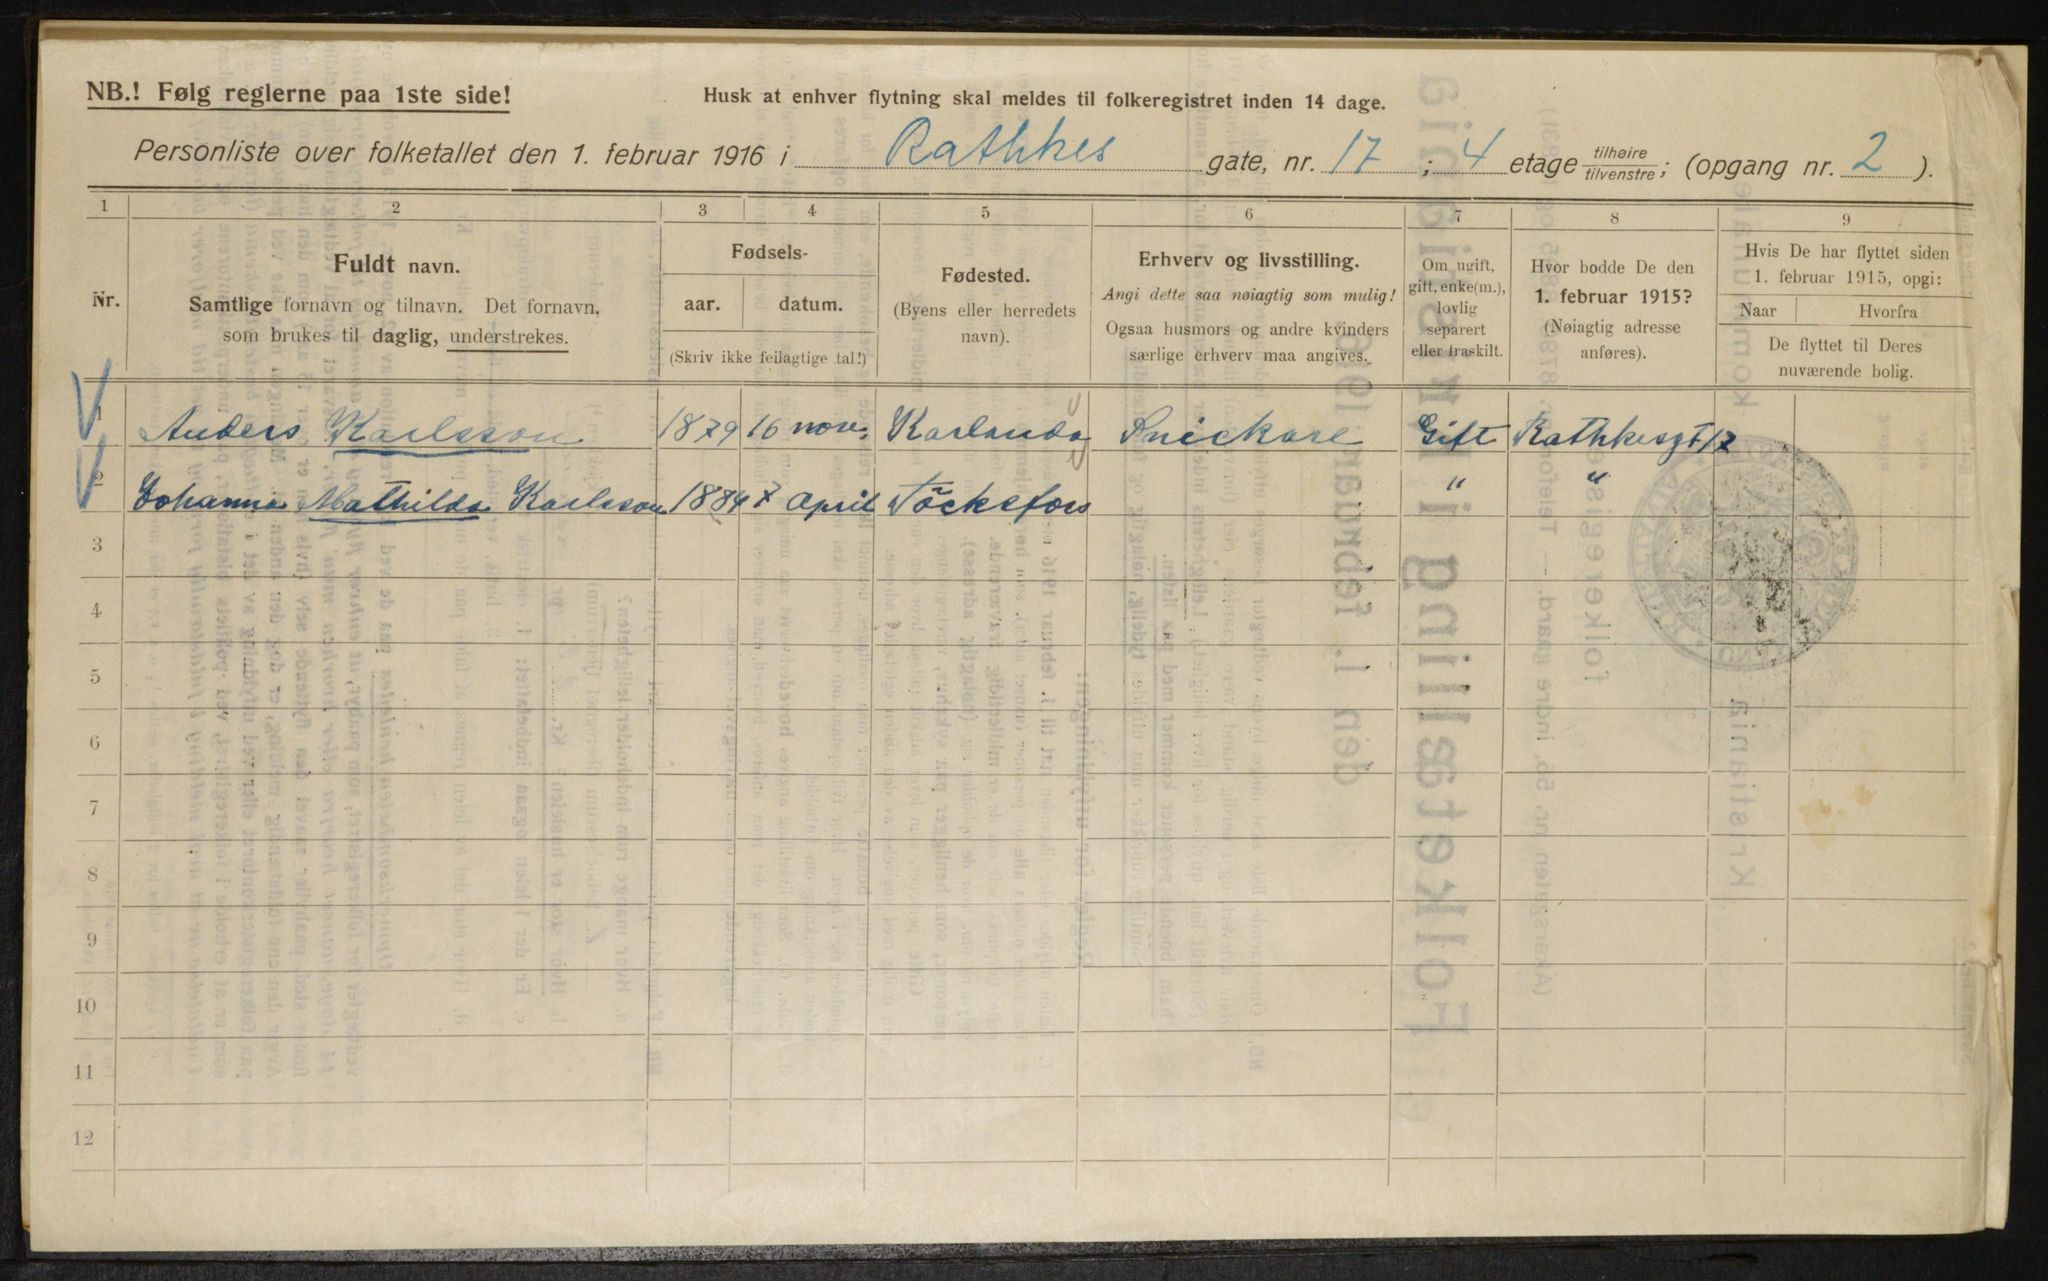 NB.! Følg reglerne paa 1ste side!
Husk at enhver flytning skal meldes til folkeregistret inden 14 dage.
Personliste over folketallet den 1. februar 1916 i Rathkes gate, nr. 17 ; 4 etage tilhøire/tilvenstre; (opgang nr. 2 ).
1 2 3 4 5 6 7 8 9
Nr.
Fuldt navn.
Samtlige fornavn og tilnavn. Det fornavn,
som brukes til daglig, understrekes.
Fødsels-
aar. datum.
(Skriv ikke feilagtige tal!)
Fødested.
(Byens eller herredets
navn).
Erhverv og livsstilling.
Angi dette saa nøiagtig som mulig!
Ogsaa husmors og andre kvinders
særlige erhverv maa angives.
Om ugift,
gift, enke(m.),
lovlig
separert
eller fraskilt.
Hvor bodde De den
1. februar 1915?
(Nøiagtig adresse
anføres).
Hvis De har flyttet siden
1. februar 1915, opgi:
Naar Hvorfra
De flyttet til Deres
nuværende bolig.
1 Anders Karlsson 1879 16 nov. Karlanda Snickare Gift Rathkesgt 17
2 Johanna Mathilda Karlsson 1884 7 april Töcksfors " "
3
4
5
6
7
8
9
10
11
12